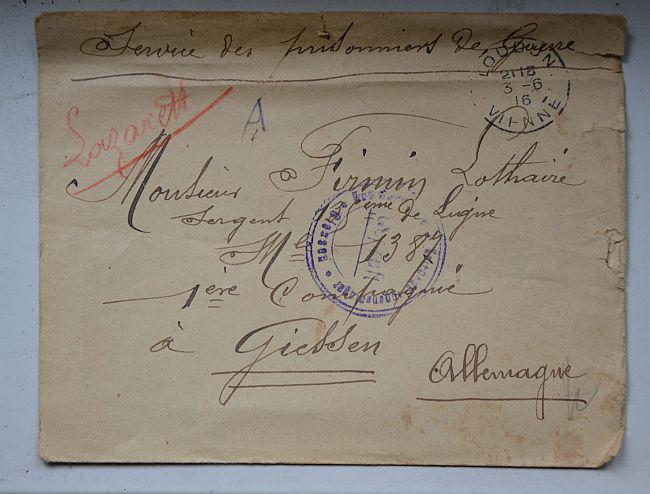 Service des prisonniers de Guerre
LOUDUN
21 15
3 - 6
16
VIENNE
Lazarett
A
Monsieur à Firmin Lothaire
Sergent ème de Ligne
Mle 1387
1ère Compagnie
à Giessen
Allemagne